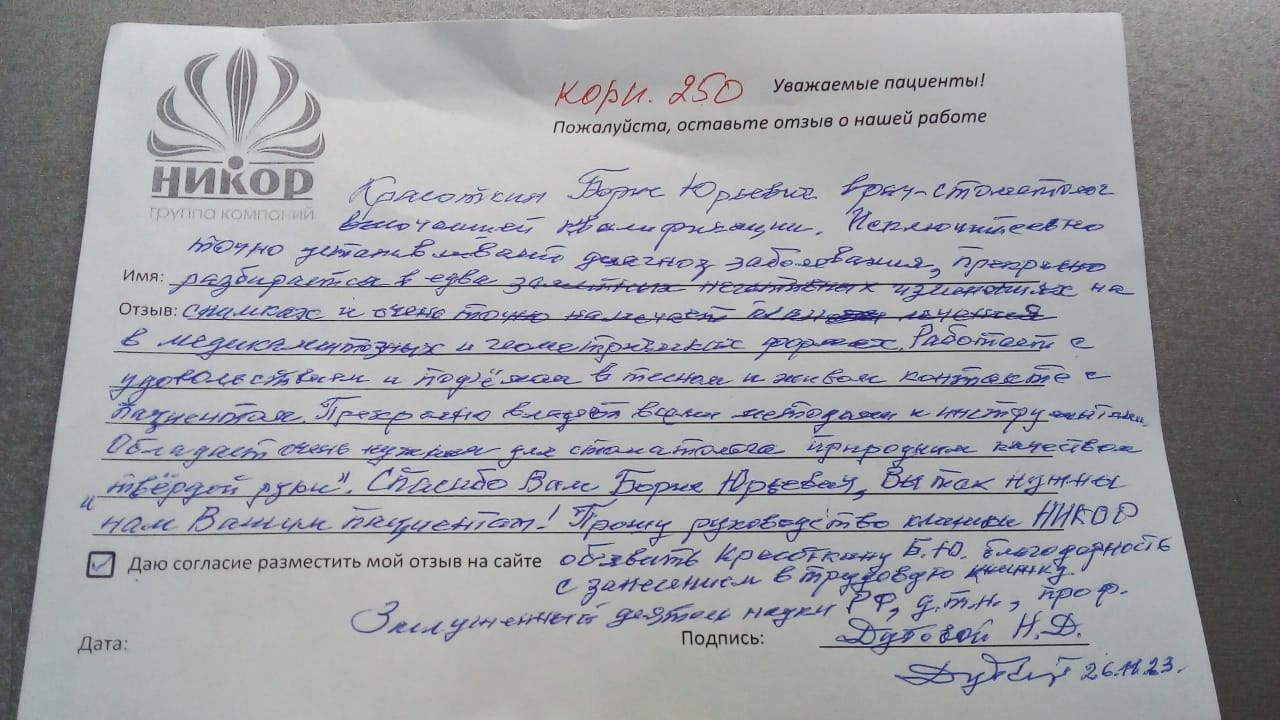 корп. 250 Уважаемые пациенты!
Пожалуйста, оставьте отзыв о нашей работе
НИКОР
группа компаний
Красоткин Борис Юрьевич врач-стоматолог
высочайшей квалификации. Исключительно
точно устанавливает диагноз заболевания, прекрасно
Имя: разбирается в едва заметных негативных изменениях на
Отзыв: снимках и очень точно намечает план лечения
в медикаментозных и геометрических формах. Работает с
удовольствием и подъёмом в тесном и живом контакте с
пациентом. Прекрасно владеет всеми методами и инструментами.
Обладает очень нужным для стоматолога природным качеством
"твёрдой руки". Спасибо Вам Борис Юрьевич, Вы так нужны
нам Вашим пациентам! Прошу руководство клиники НИКОР
Даю согласие разместить мой отзыв на сайте
объявить Красоткину Б.Ю. благодарность
с занесением в трудовую книжку.
Заслуженный деятель науки РФ, д.т.н., проф.
Дата: Подпись: Дутовой Н.Д.
26.11.23.